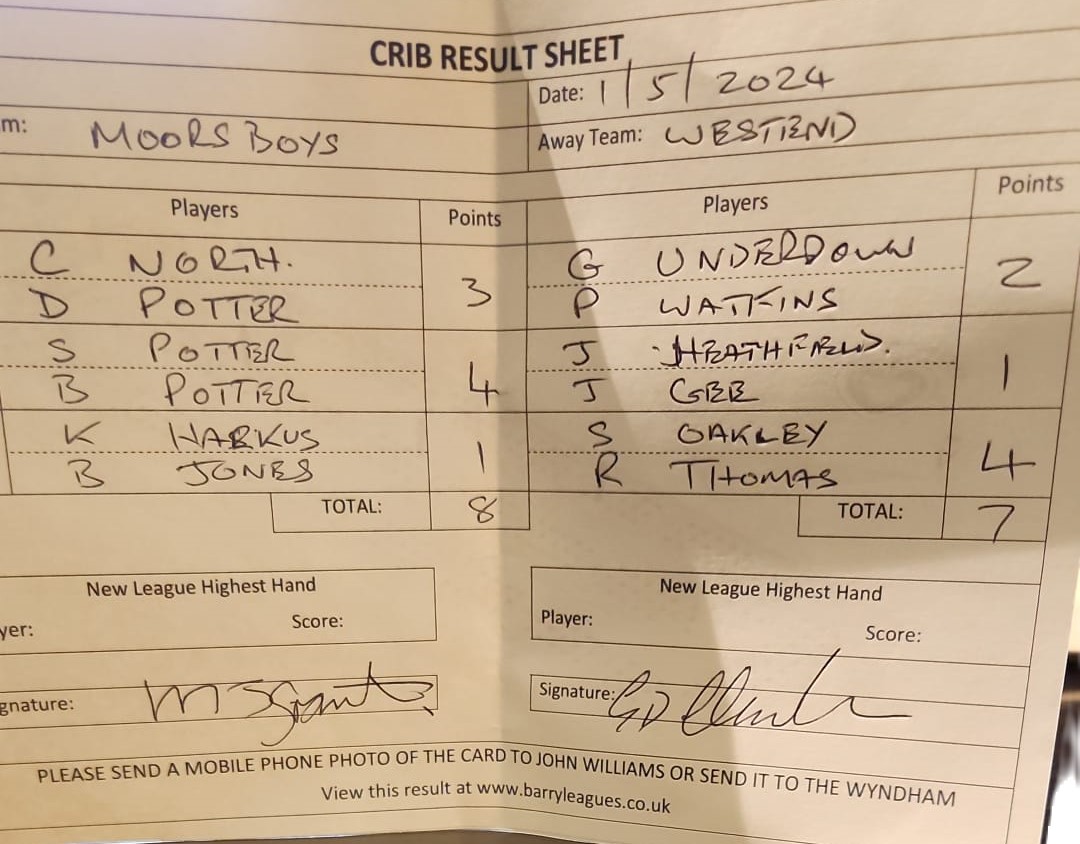 CRIB RESULT SHEET
Date: 1/5/2024
m: MOORS BOYS
Away Team: WESTEND
Players Points
C NORTH.
D POTTER
3
S POTTER
B POTTER
4
K HARKUS
B JONES
1
TOTAL: 8
Players Points
G UNDERDOWN
P WATKINS
2
J HEATHFIELD.
J GEE
1
S OAKLEY
R THOMAS
4
TOTAL: 7
New League Highest Hand
yer: Score:
gnature:
New League Highest Hand
Player: Score:
Signature:
PLEASE SEND A MOBILE PHONE PHOTO OF THE CARD TO JOHN WILLIAMS OR SEND IT TO THE WYNDHAM
View this result at www.barryleagues.co.uk